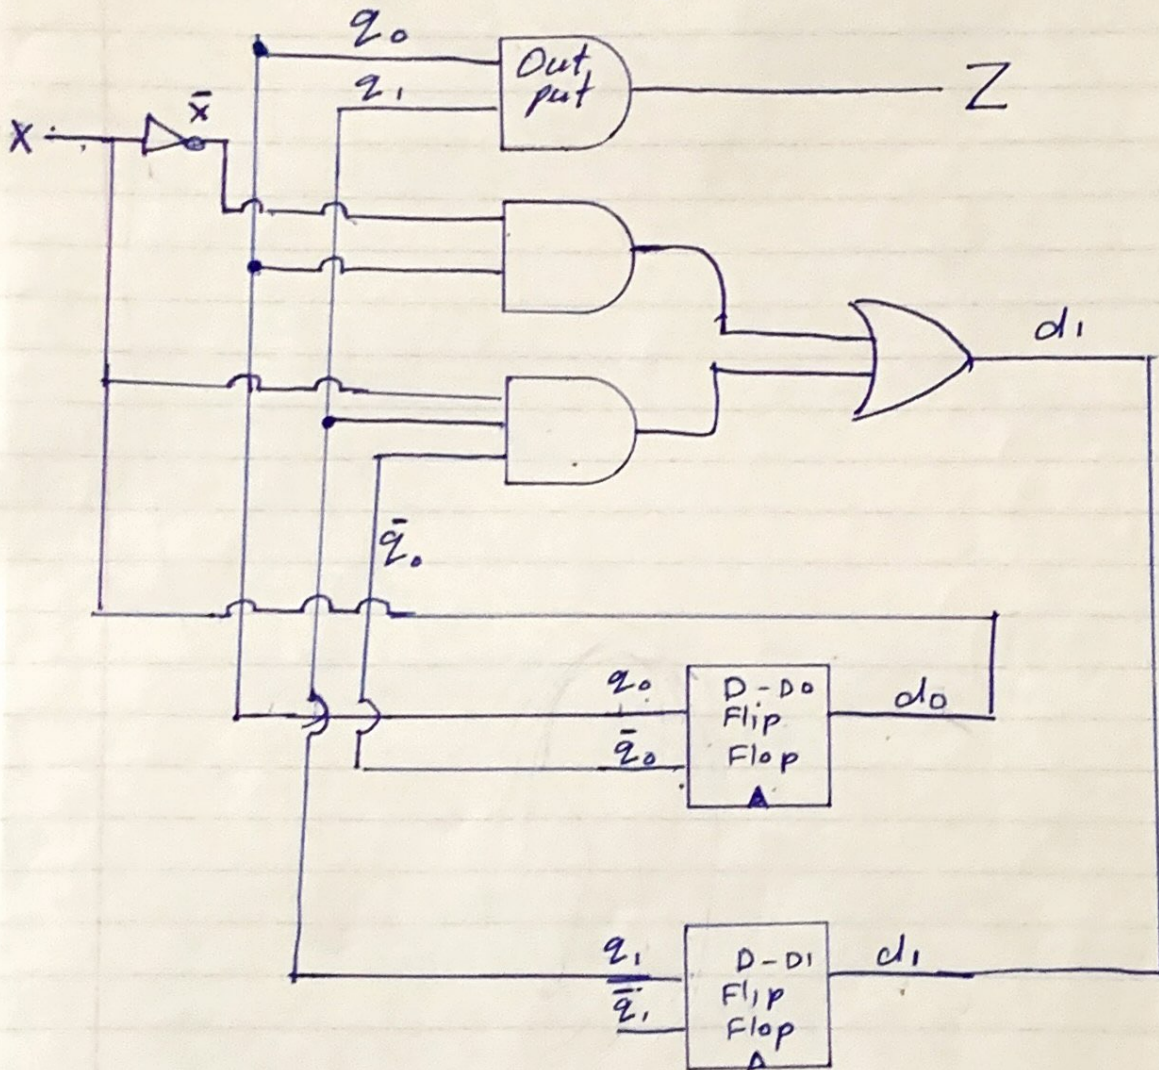 q₀
Out
put
Z
q₁
x̄
X
d₁
q̄₀
q₀
D-D0
Flip
Flop
d₀
q̄₀
q₁
D-D1
Flip
Flop
d₁
q̄₁